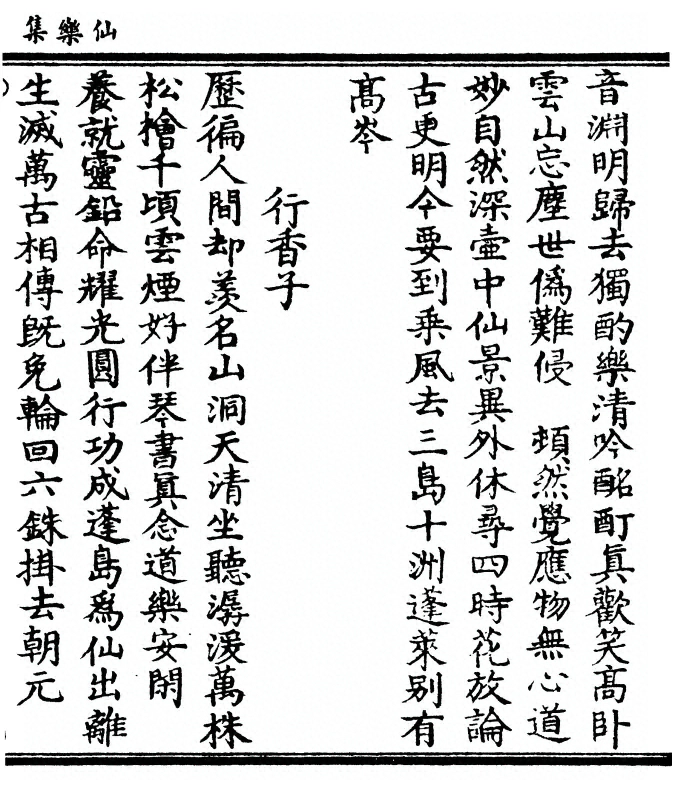 仙樂集
音淵明歸去獨酌樂清吟酩酊眞歡笑髙卧
雲山忘塵世僞難侵　頓然覺應物無心道
妙自然深壷中仙景異外休尋四時花放論
古更明今要到乘風去三島十洲蓬萊别有
髙岑
行香子
歷徧人間却羡名山洞天清坐聽潺湲萬株
松檜千頃雲煙好伴琴書眞念道樂安閑
養就靈鉛命耀光圓行功成蓬島爲仙出離
生滅萬古相傳旣免輪回六銖掛去朝元